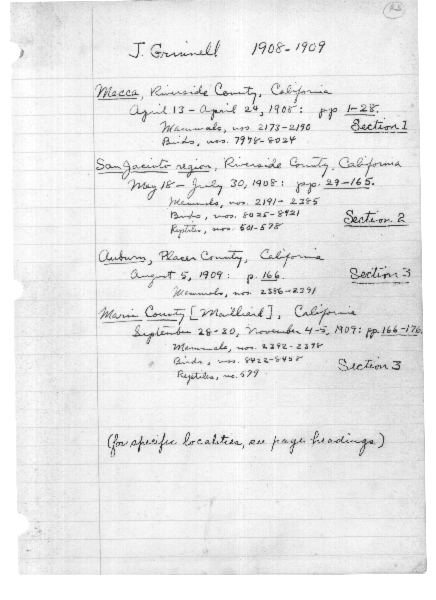 J. Grinnell 1908-1909
Mecca, Riverside County, California
April 13 - April 24, 1908: pp 1-28.
Mammals, nos. 2173-2190 Section 1
Birds, nos. 7978-8024
San Jacinto region, Riverside County, California
May 18 - July 30, 1908: pp. 29-165.
Mammals, nos. 2191-2385
Birds, nos. 8025-8421 Section 2
Reptiles, nos. 501-578
Auburn, Placer County, California
August 5, 1909: p. 166. Section 3
Mammals, nos. 2386-2391
Marin County [Mailliard], California
September 28-30, November 4-5, 1909: pp. 166-176.
Mammals, nos. 2392-2398
Birds, nos. 8422-8458 Section 3
Reptiles, no. 579
(for specific localities, see page headings)